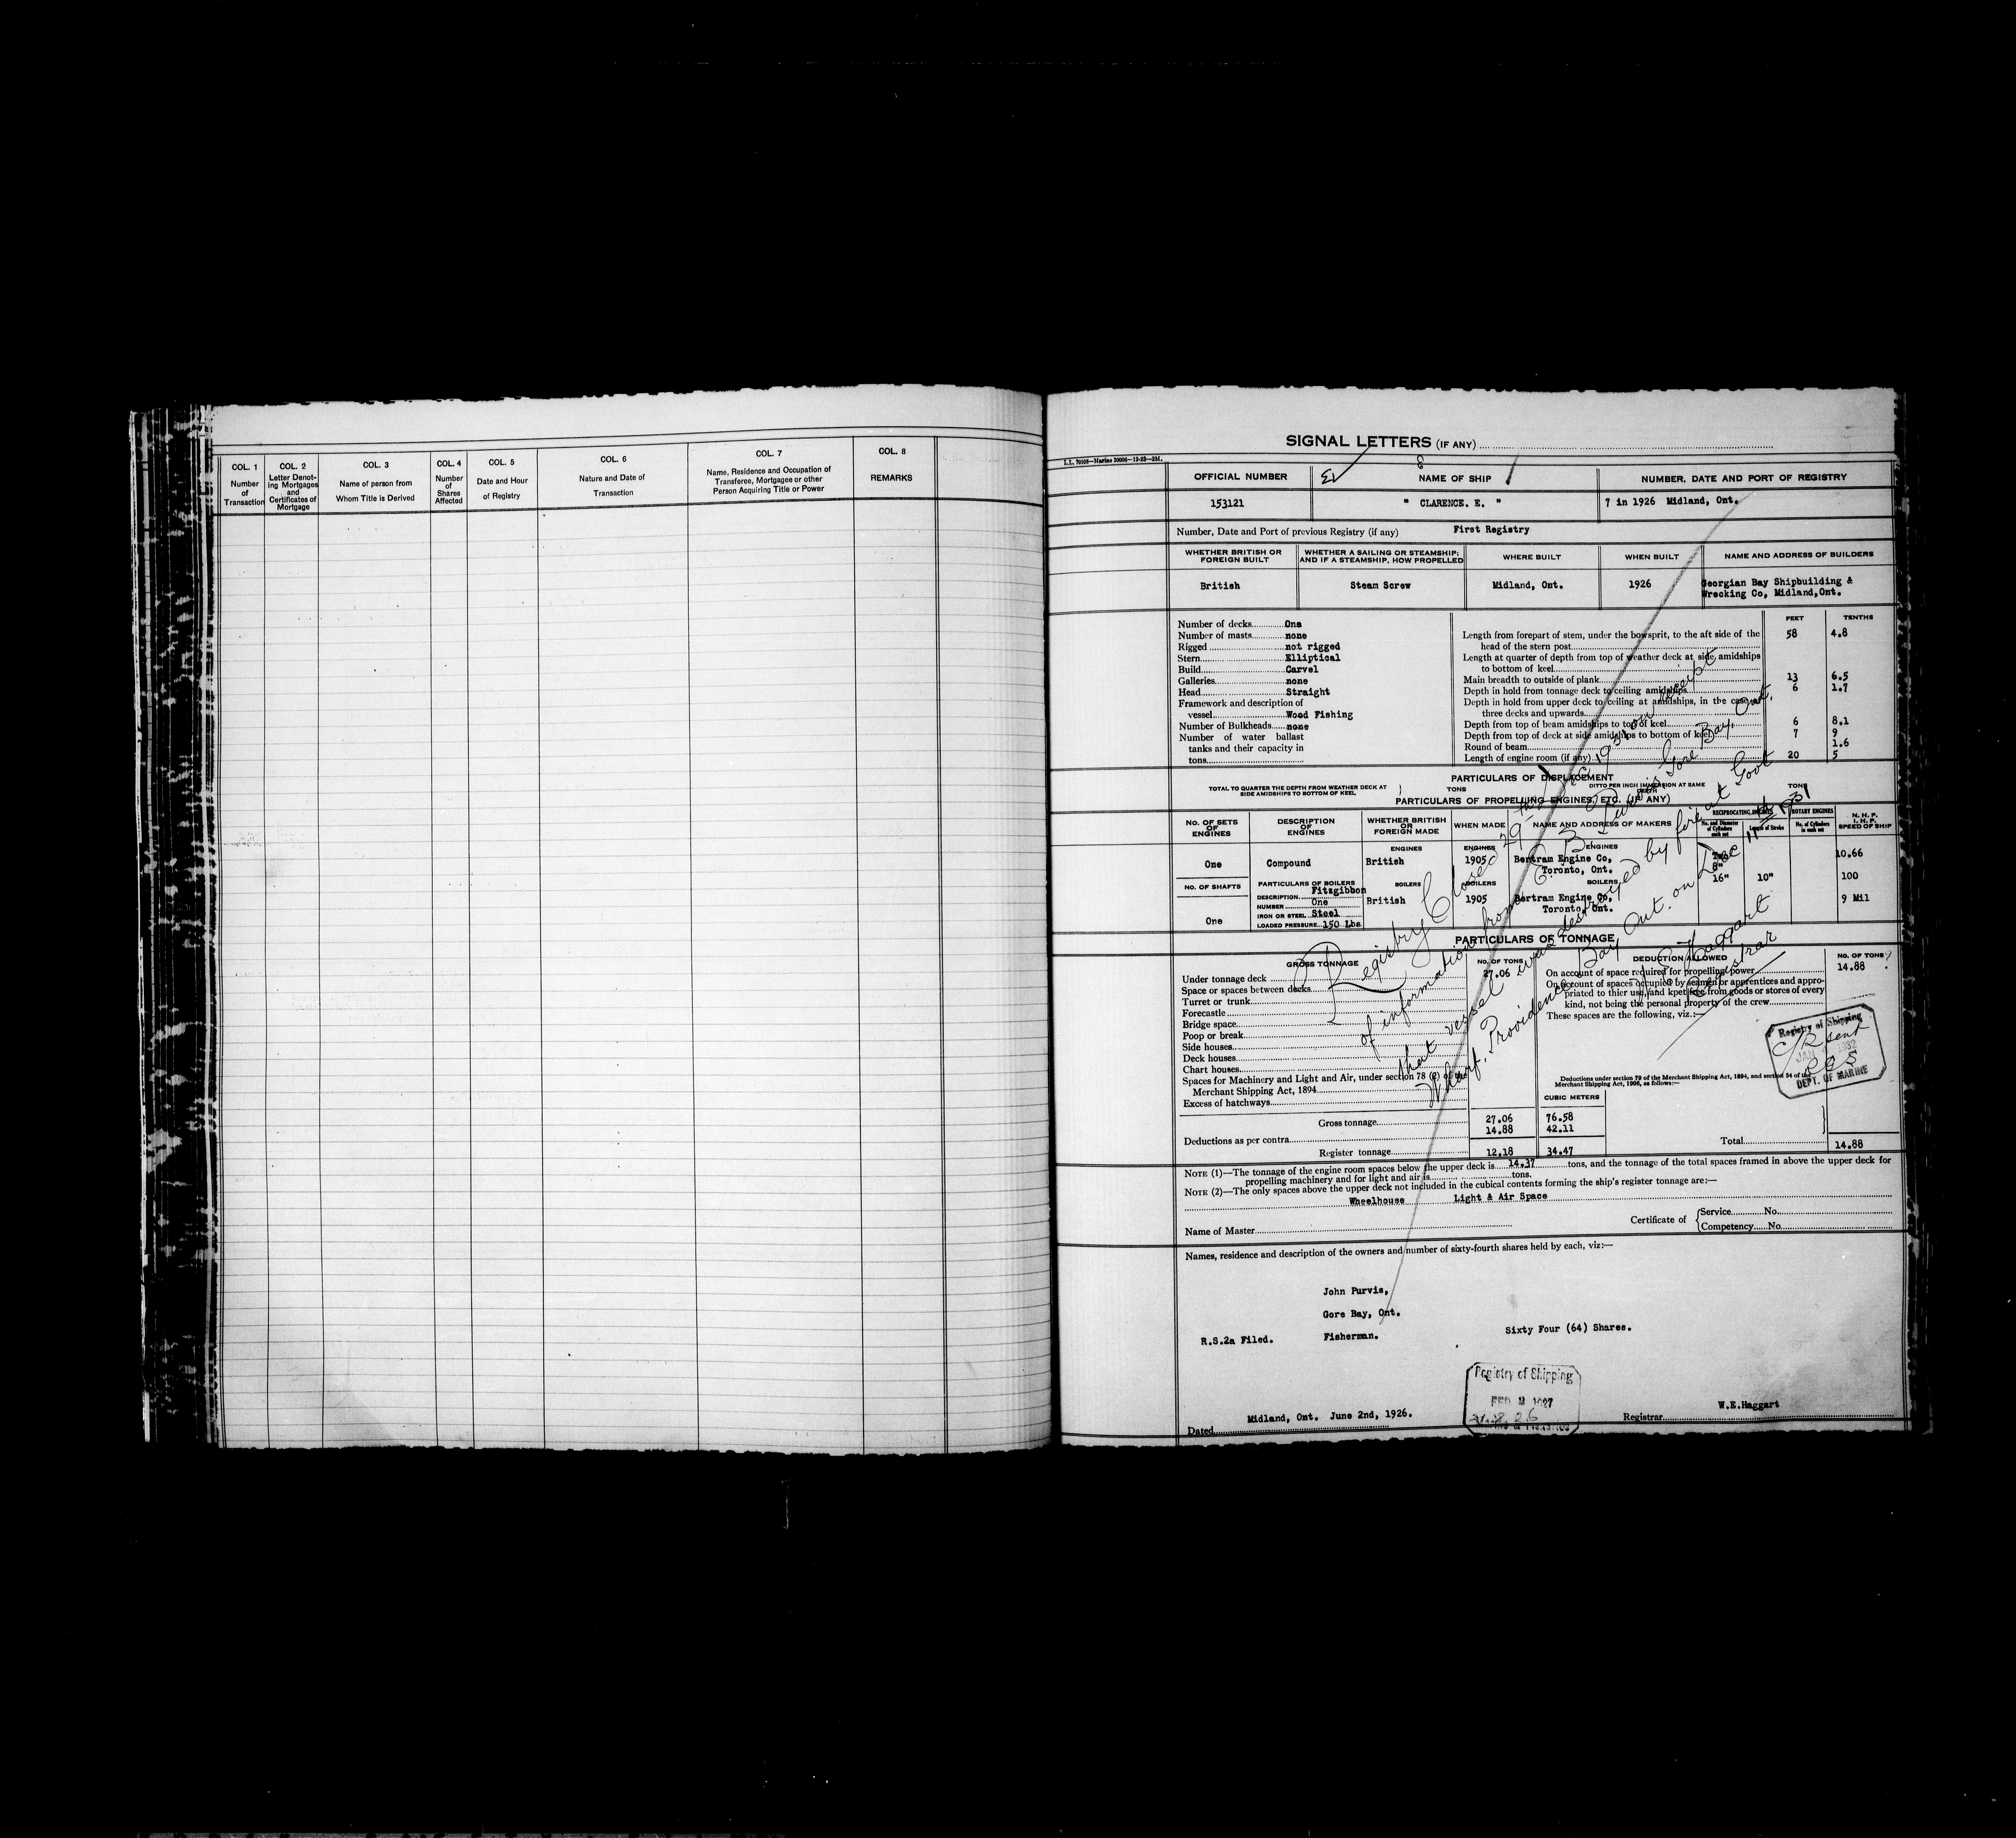 COL. 1
Number
of
Transaction
COL. 2
Letter Denot-
ing Mortgages
and
Certificates of
Mortgage
COL. 3
Name of person from
Whom Title is Derived
COL. 4
Number
of
Shares
Affected
COL. 5
Date and Hour
of Registry
COL. 6
Nature and Date of
Transaction
COL. 7
Name, Residence and Occupation of
Transferee, Mortgagee or other
Person Acquiring Title or Power
COL. 8
REMARKS
SIGNAL LETTERS (IF ANY)
OFFICIAL NUMBER NAME OF SHIP NUMBER, DATE AND PORT OF REGISTRY
153121 " CLARENCE. E. " 7 in 1926 Midland, Ont.
Number, Date and Port of previous Registry (if any) First Registry
WHETHER BRITISH OR
FOREIGN BUILT
WHETHER A SAILING OR STEAMSHIP;
AND IF A STEAMSHIP, HOW PROPELLED
WHERE BUILT
WHEN BUILT
NAME AND ADDRESS OF BUILDERS
British Steam Screw Midland, Ont. 1926 Georgian Bay Shipbuilding &
Wrecking Co, Midland,Ont.
Number of decks One
Number of masts none
Rigged not rigged
Stern Elliptical
Build Carvel
Galleries none
Head Straight
Framework and description of
vessel Wood Fishing
Number of Bulkheads none
Number of water ballast
tanks and their capacity in
tons
FEET TENTHS
Length from forepart of stem, under the bowsprit, to the aft side of the
head of the stern post 58 4.8
Length at quarter of depth from top of weather deck at side amidships
to bottom of keel
Main breadth to outside of plank 13 6.5
Depth in hold from tonnage deck to ceiling amidships 6 1.7
Depth in hold from upper deck to ceiling at amidships, in the case of
three decks and upwards
Depth from top of beam amidships to top of keel 6 8.1
Depth from top of deck at side amidships to bottom of keel 7 9
Round of beam 1.6
Length of engine room (if any) 20 5
PARTICULARS OF DISPLACEMENT
TOTAL TO QUARTER THE DEPTH FROM WEATHER DECK AT
SIDE AMIDSHIPS TO BOTTOM OF KEEL
TONS
DITTO PER INCH IMMERSION AT SAME
DEPTH
TONS
PARTICULARS OF PROPELLING ENGINES, ETC. (IF ANY)
No. OF SETS
OF
ENGINES
DESCRIPTION
OF
ENGINES
WHETHER BRITISH
OR
FOREIGN MADE
WHEN MADE
NAME AND ADDRESS OF MAKERS
RECIPROCATING ENGINES
No. and Diameter
of Cylinders
each set
Length of Stroke
ROTARY ENGINES
No. of Cylinders
in each set
N. H. P.
I. H. P.
SPEED OF SHIP
ENGINES ENGINES ENGINES
One Compound British 1905 Bertram Engine Co,
Toronto, Ont.
Two
8"
16" 10"
10.66
100
9 Mil
NO. OF SHAFTS
One
PARTICULARS OF BOILERS
DESCRIPTION Fitzgibbon
NUMBER One
IRON OR STEEL Steel
LOADED PRESSURE 150 Lbs
BOILERS BOILERS BOILERS
British 1905 Bertram Engine Co,
Toronto, Ont.
PARTICULARS OF TONNAGE
GROSS TONNAGE NO. OF TONS
Under tonnage deck 27.06
Space or spaces between decks
Turret or trunk
Forecastle
Bridge space
Poop or break
Side houses
Deck houses
Chart houses
Spaces for Machinery and Light and Air, under section 78 (2) of the
Merchant Shipping Act, 1894
Excess of hatchways
DEDUCTION ALLOWED NO. OF TONS
On account of space required for propelling power 14.88
On account of spaces occupied by seamen or apprentices and appro-
priated to thier use, and kpet free from goods or stores of every
kind, not being the personal property of the crew
These spaces are the following, viz.:—
Deductions under section 79 of the Merchant Shipping Act, 1894, and section 54 of the
Merchant Shipping Act, 1906, as follows:—
CUBIC METERS
Gross tonnage 27.06 76.58
Deductions as per contra 14.88 42.11
Register tonnage 12.18 34.47
Total 14.88
Registry Closed 29th Dec 1931 on receipt
of information from C. B. Purvis Gore Bay, Ont.
that vessel was destroyed by fire at Govt
Wharf, Providence Bay Ont. on Dec 11th 1931
W E Haggart
Registrar
Registry of Shipping
C/R sent
JAN 1932
DEPT. OF MARINE
NOTE (1)—The tonnage of the engine room spaces below the upper deck is 14.37 tons, and the tonnage of the total spaces framed in above the upper deck for
propelling machinery and for light and air is tons.
NOTE (2)—The only spaces above the upper deck not included in the cubical contents forming the ship's register tonnage are:—
Wheelhouse Light & Air Space
Name of Master
Certificate of
Service No.
Competency No.
Names, residence and description of the owners and number of sixty-fourth shares held by each, viz:—
John Purvis,
Gore Bay, Ont.
R.S.2a Filed. Fisherman. Sixty Four (64) Shares.
Registry of Shipping
FEB 2 1927
Dated Midland, Ont. June 2nd, 1926.
Registrar W.E.Haggart